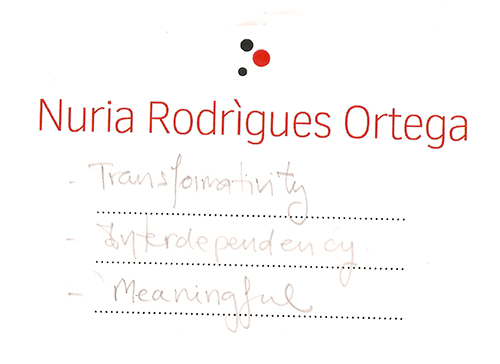 Nuria Rodrìgues Ortega
- Transformativity
- Interdependency
- Meaningful